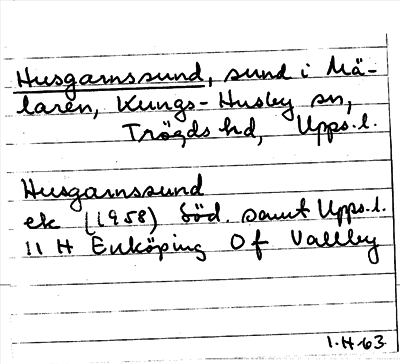 Husgarnssund, sund i Mä-
laren, Kungs-Husby sn,
Trögds hd, Upps. l.
Husgarnssund
ek (1958) Söd. samt Upps. l.
11 H Enköping Of Vallby
1-H-63